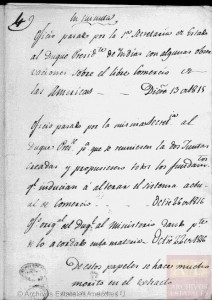 4º) Minutas
Oficio pasado por la 1ª Secretaria de Estado
al Duque Presid.te de Indias con algunas obser
vaciones sobre el libre Comercio de
las Americas. Dbre 13 de 1815
Oficio pasado por la misma Secret.ª al
Duque Pres.te p.ª que se reuniesen la dos Juntas
creadas y propusiesen todos los fundam.tos
q.e inducian à alterar el sistema actu
al de Comercio. Octre 26 de 1816
Of.º orig.l del Duq.e al ministerio dando p.te
de lo acordado en la materia. Octre 22 de 1816
De estos papeles se hace mucho
merito en el Extracto
Archivos Estatales